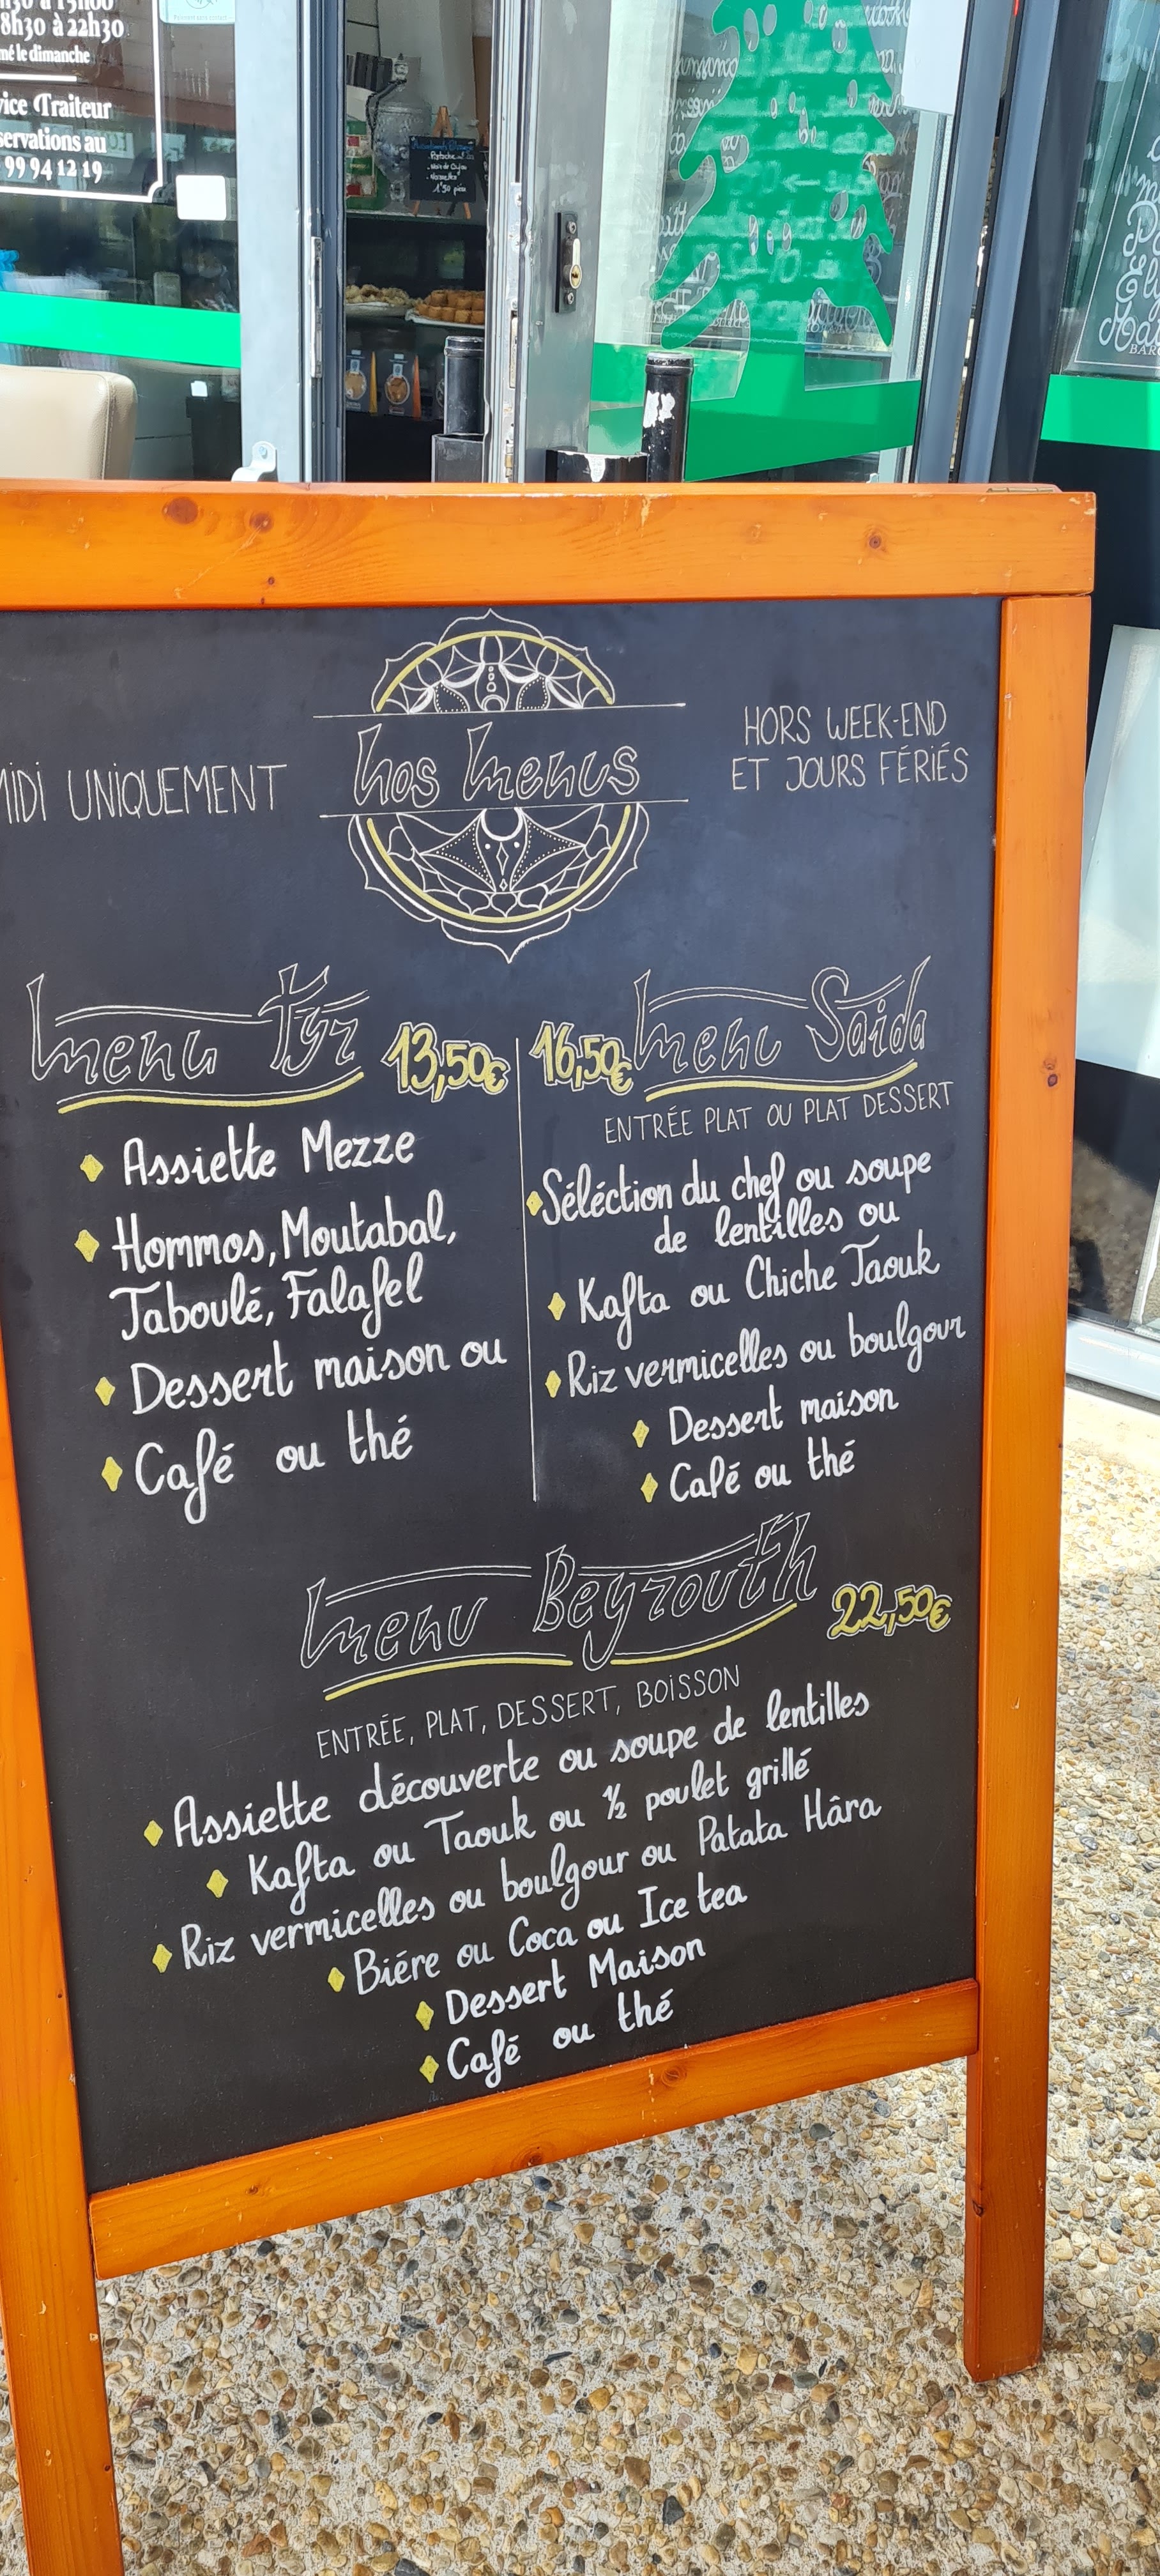 8h30 à 22h30
le dimanche
Traiteur
au
99 94 12 19
Pistache
Noisettes
1'50 pièce
MIDI UNIQUEMENT
Nos Menus
HORS WEEK-END
ET JOURS FÉRIÉS
Menu Tyr 13,50€
Assiette Mezze
Hommos, Moutabal,
Taboulé, Falafel
Dessert maison ou
Café ou thé
16,50€ Menu Saida
ENTRÉE PLAT OU PLAT DESSERT
Séléction du chef ou soupe
de lentilles ou
Kafta ou Chiche Taouk
Riz vermicelles ou boulgour
Dessert maison
Café ou thé
Menu Beyrouth 22,50€
ENTRÉE, PLAT, DESSERT, BOISSON
Assiette découverte ou soupe de lentilles
Kafta ou Taouk ou ½ poulet grillé
Riz vermicelles ou boulgour ou Patata Hâra
Biére ou Coca ou Ice tea
Dessert Maison
Café ou thé